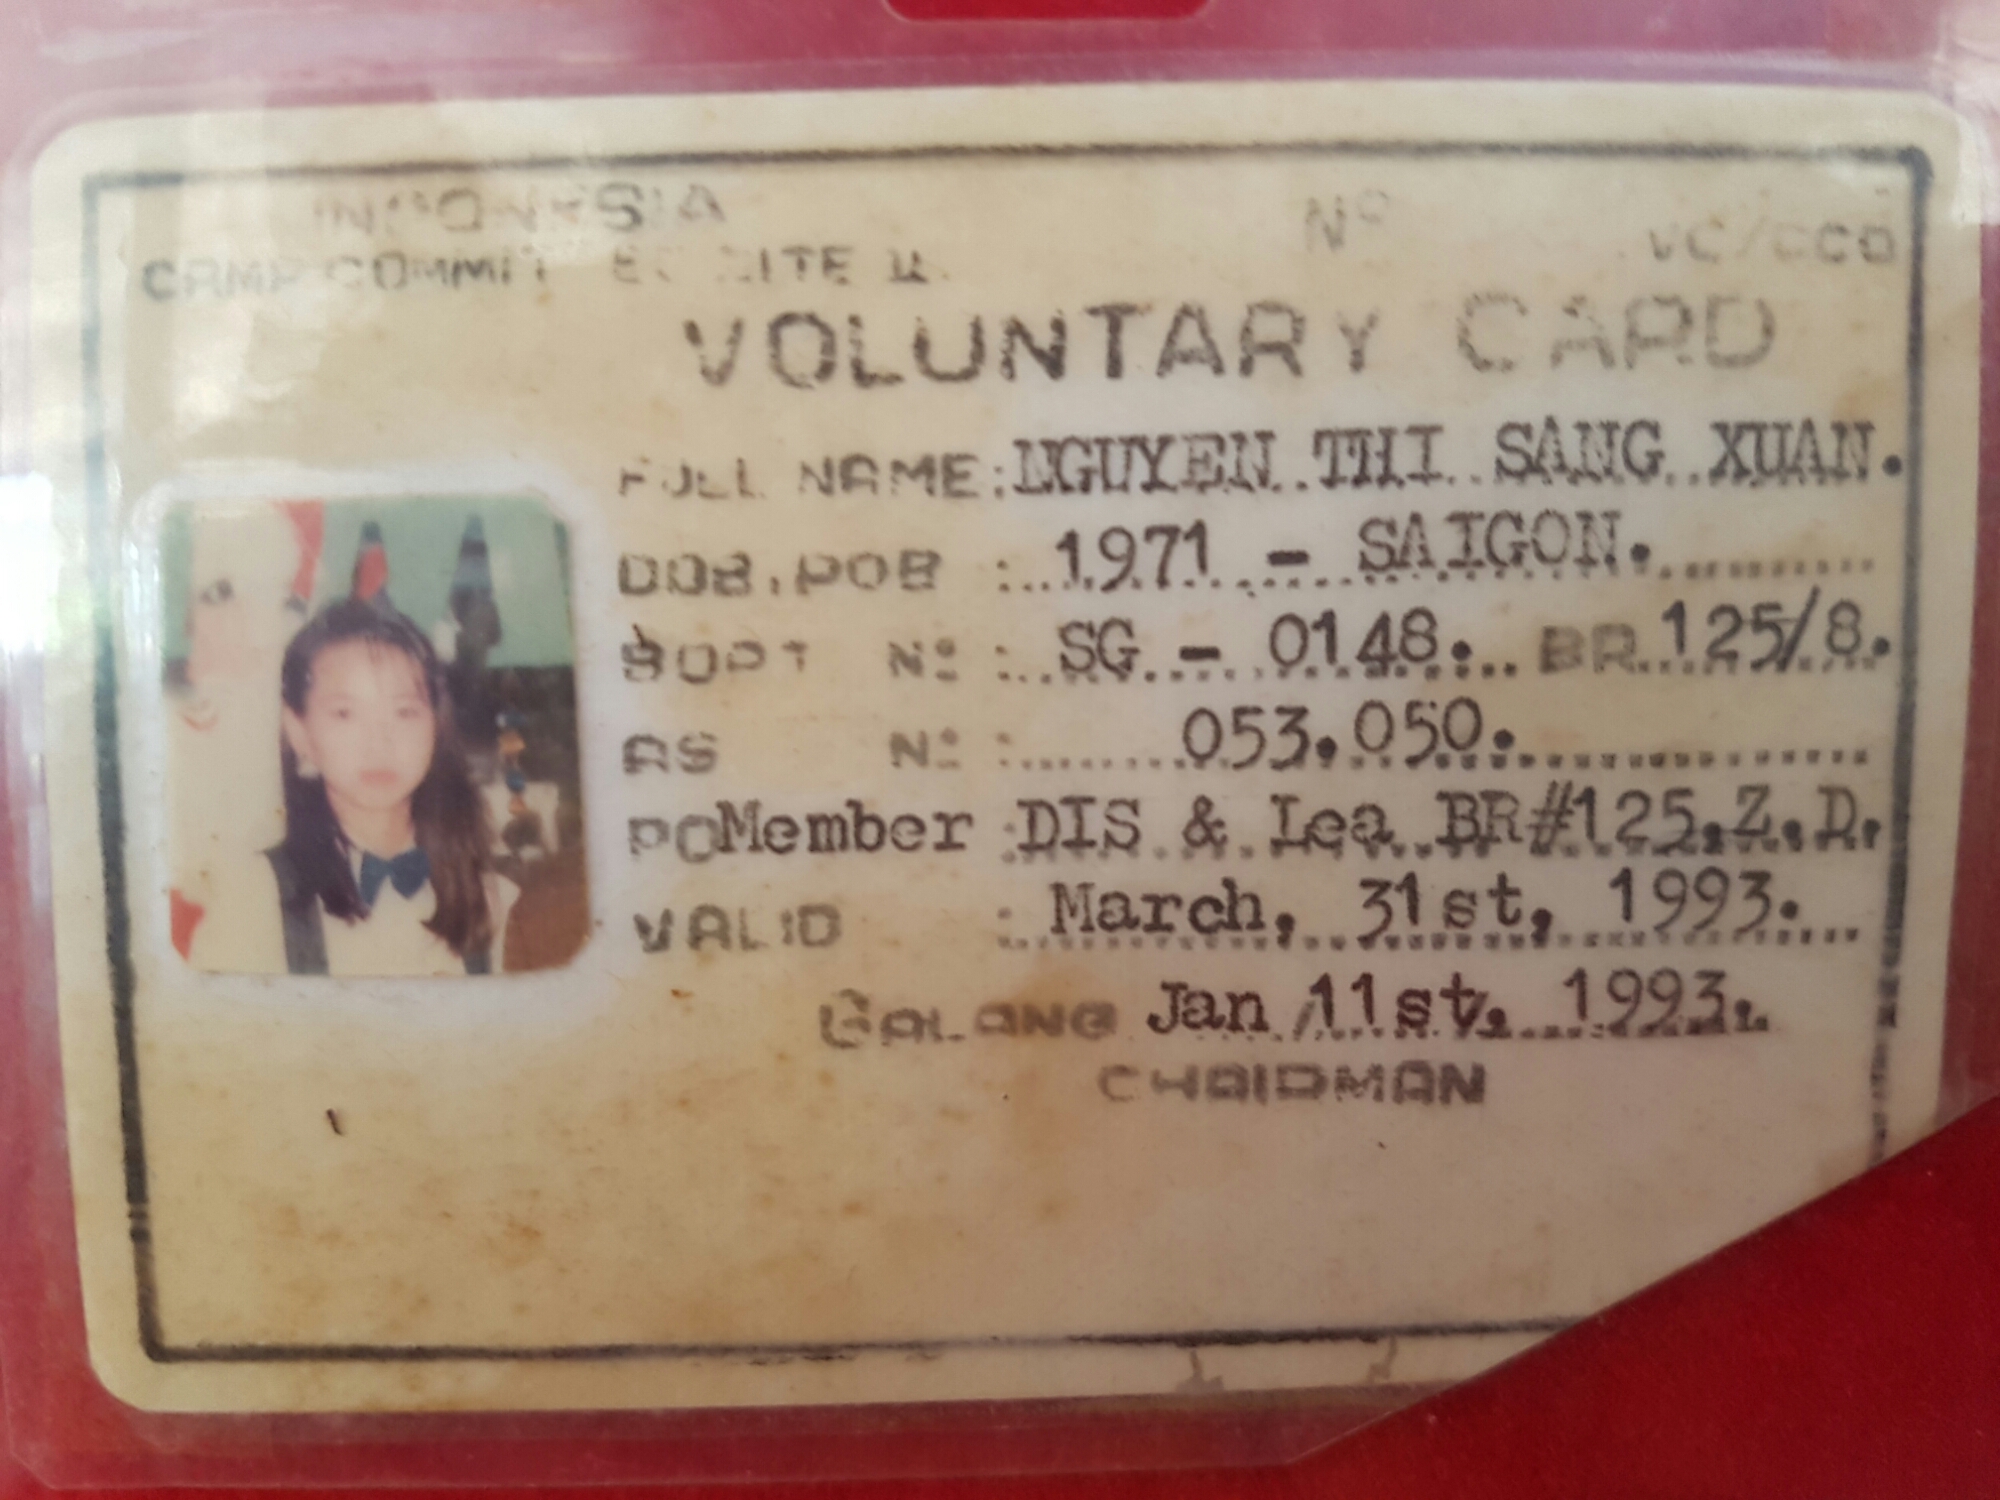 INDONESIA
CAMP COMMITTEE SITE II Nº VC/CCO
VOLUNTARY CARD
FULL NAME: NGUYEN THI SANG XUAN.
DOB.POB : 1971 - SAIGON.
BOPT Nº : SG - 0148. BR 125/8.
RS Nº : 053.050.
POMember : DIS & Lea BR#125.Z.D.
VALID : March, 31st, 1993.
GALANG Jan 11st, 1993.
CHAIRMAN